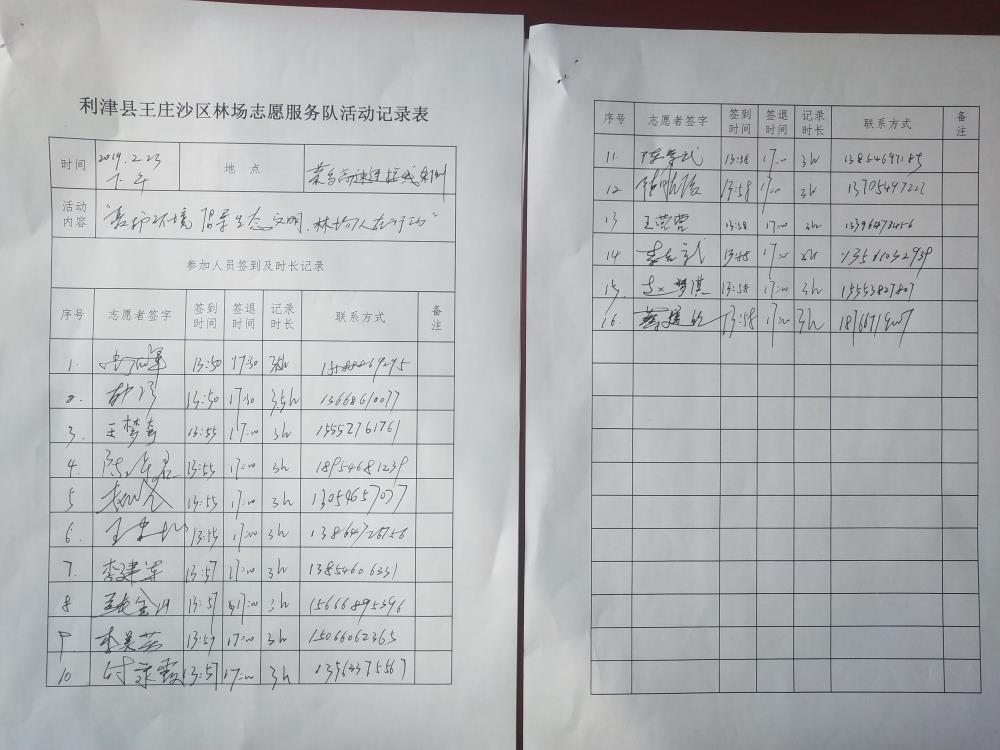 利津县王庄沙区林场志愿服务队活动记录表
时间 2019.2.23 下午 地点
活动内容 "爱护环境 倡导生态文明.林场人在行动"
参加人员签到及时长记录
序号 志愿者签字 签到时间 签退时间 记录时长 联系方式 备注
1. 13:50 17:30
2. 13:50 17:30 3.5h 13668610077
3. 王梦奇 13:55 17:00 3h 15552761761
4. 13:55 17:00 3h 18954681239
5 13:55 17:00 3h 13054657077
6. 13:55 17:00 3h 13864726756
7. 李建军 13:57 17:00 3h 13854606331
8 13:57 17:00 3h 15666895396
9 李美芸 13:57 17:00 3h 15066062365
10 付录霞 13:57 17:00 3h 13563375567
序号 志愿者签字 签到时间 签退时间 记录时长 联系方式 备注
11. 13:58 17:00 3h
12 13:58 17:00 3h 13705497222
13 王莹莹 13:58 17:00 3h
14 13:58 17:00 13561032939
15. 赵梦淇 13:58 17:00 3h 15553827807
16. 13:58 17:00 3h